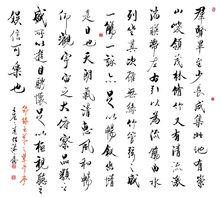 群賢畢至少長咸集此地有崇
山峻領茂林脩竹又有清流激
湍映帶左右引以為流觴曲水
列坐其次雖無絲竹管弦之盛
一觴一詠亦足以暢敘幽情
是日也天朗氣清惠風和暢
仰觀宇宙之大俯察品類之
盛所以遊目騁懷足以極視聽之
娛信可樂也